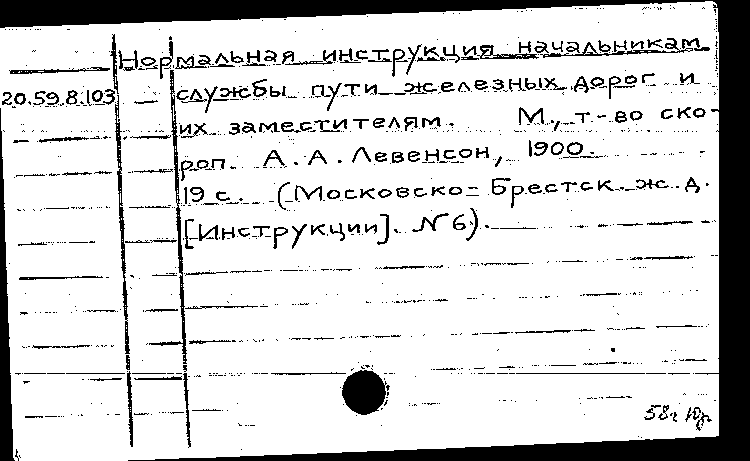 Нормальная инструкция начальникам
20.59.8.103 — службы пути железных дорог и
их заместителям. М., т-во ско-
роп. А. А. Левенсон, 1900.
19 с. (Московско-Брестск. ж. д.
[Инструкции]. № 6).
58г